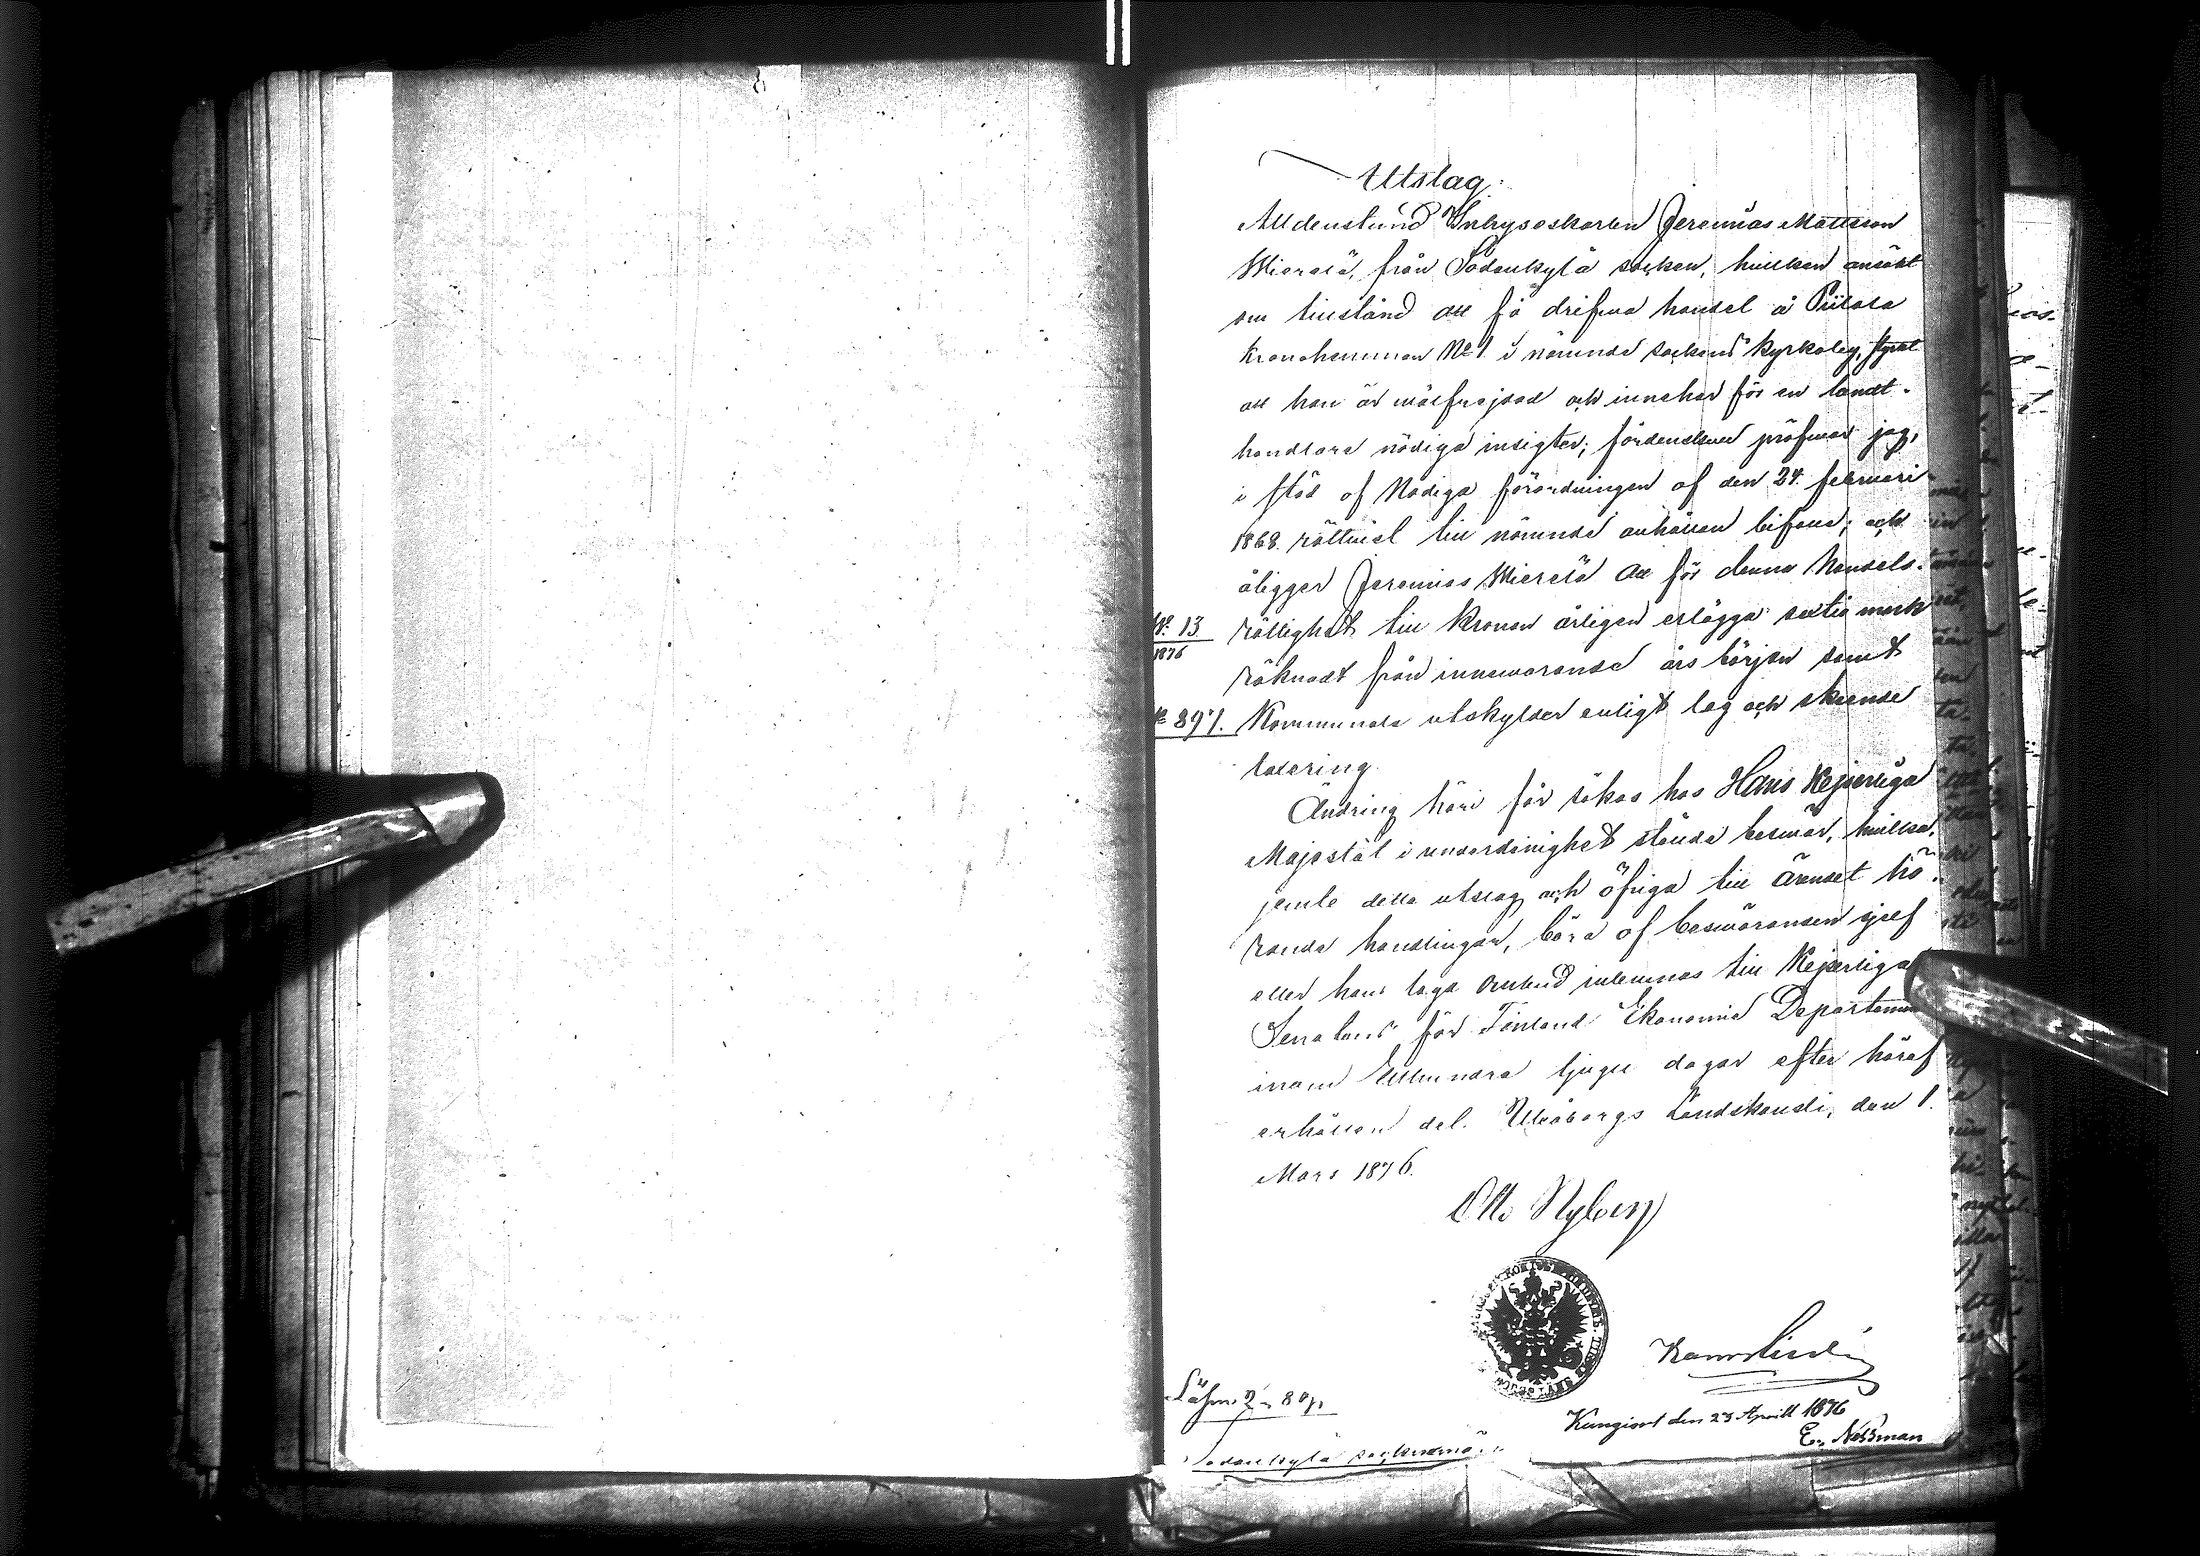 Utslag.
Alldenstund Inhysoskarlen Jeremias Mattsson
Mierelä, från Sodankylä socken, hvilken ansökt
om tillstånd att få drifva handel å Piilola
Kronohemman No 1. i nämnde sockens kyrkoby, styrkt
att han är välfrejdad och innehar för en landt-
handlare nödiga insigter; fördenskull pröfvar jag,
i stöd af Nådiga förordningen af den 24 februari
1868. rättvist till nämnde anhållan bifalla; och
åligger Jeremias Mierelä att för denna handels-
No. 13
1876
rättighet till Kronan årligen erlägga sextio mark
räknadt från innevarande års början samt
No 897.
Kommunala utskylder enligt lag och skeende
taxering.
Ändring häri får sökas hos Hans Kejserliga
Majestät i underdånighet stälde besvär, hvilka,
jemte detta utslag och öfriga till ärendet hö-
rande handlingar, böra af besväranden sjelf
eller hans laga ombud inlemnas till Kejserliga
Senatens för Finland Ekonomie Departement
inom Etthundra tjugu dagar efter häraf
erhållen del. Uleåborgs Landskansli, den 1.
Mars 1876.
Otto Nyberg
Lösen 2 80 p.
Kungjort den 23 April 1876
E. Nessman
Sodankylä sockenmän